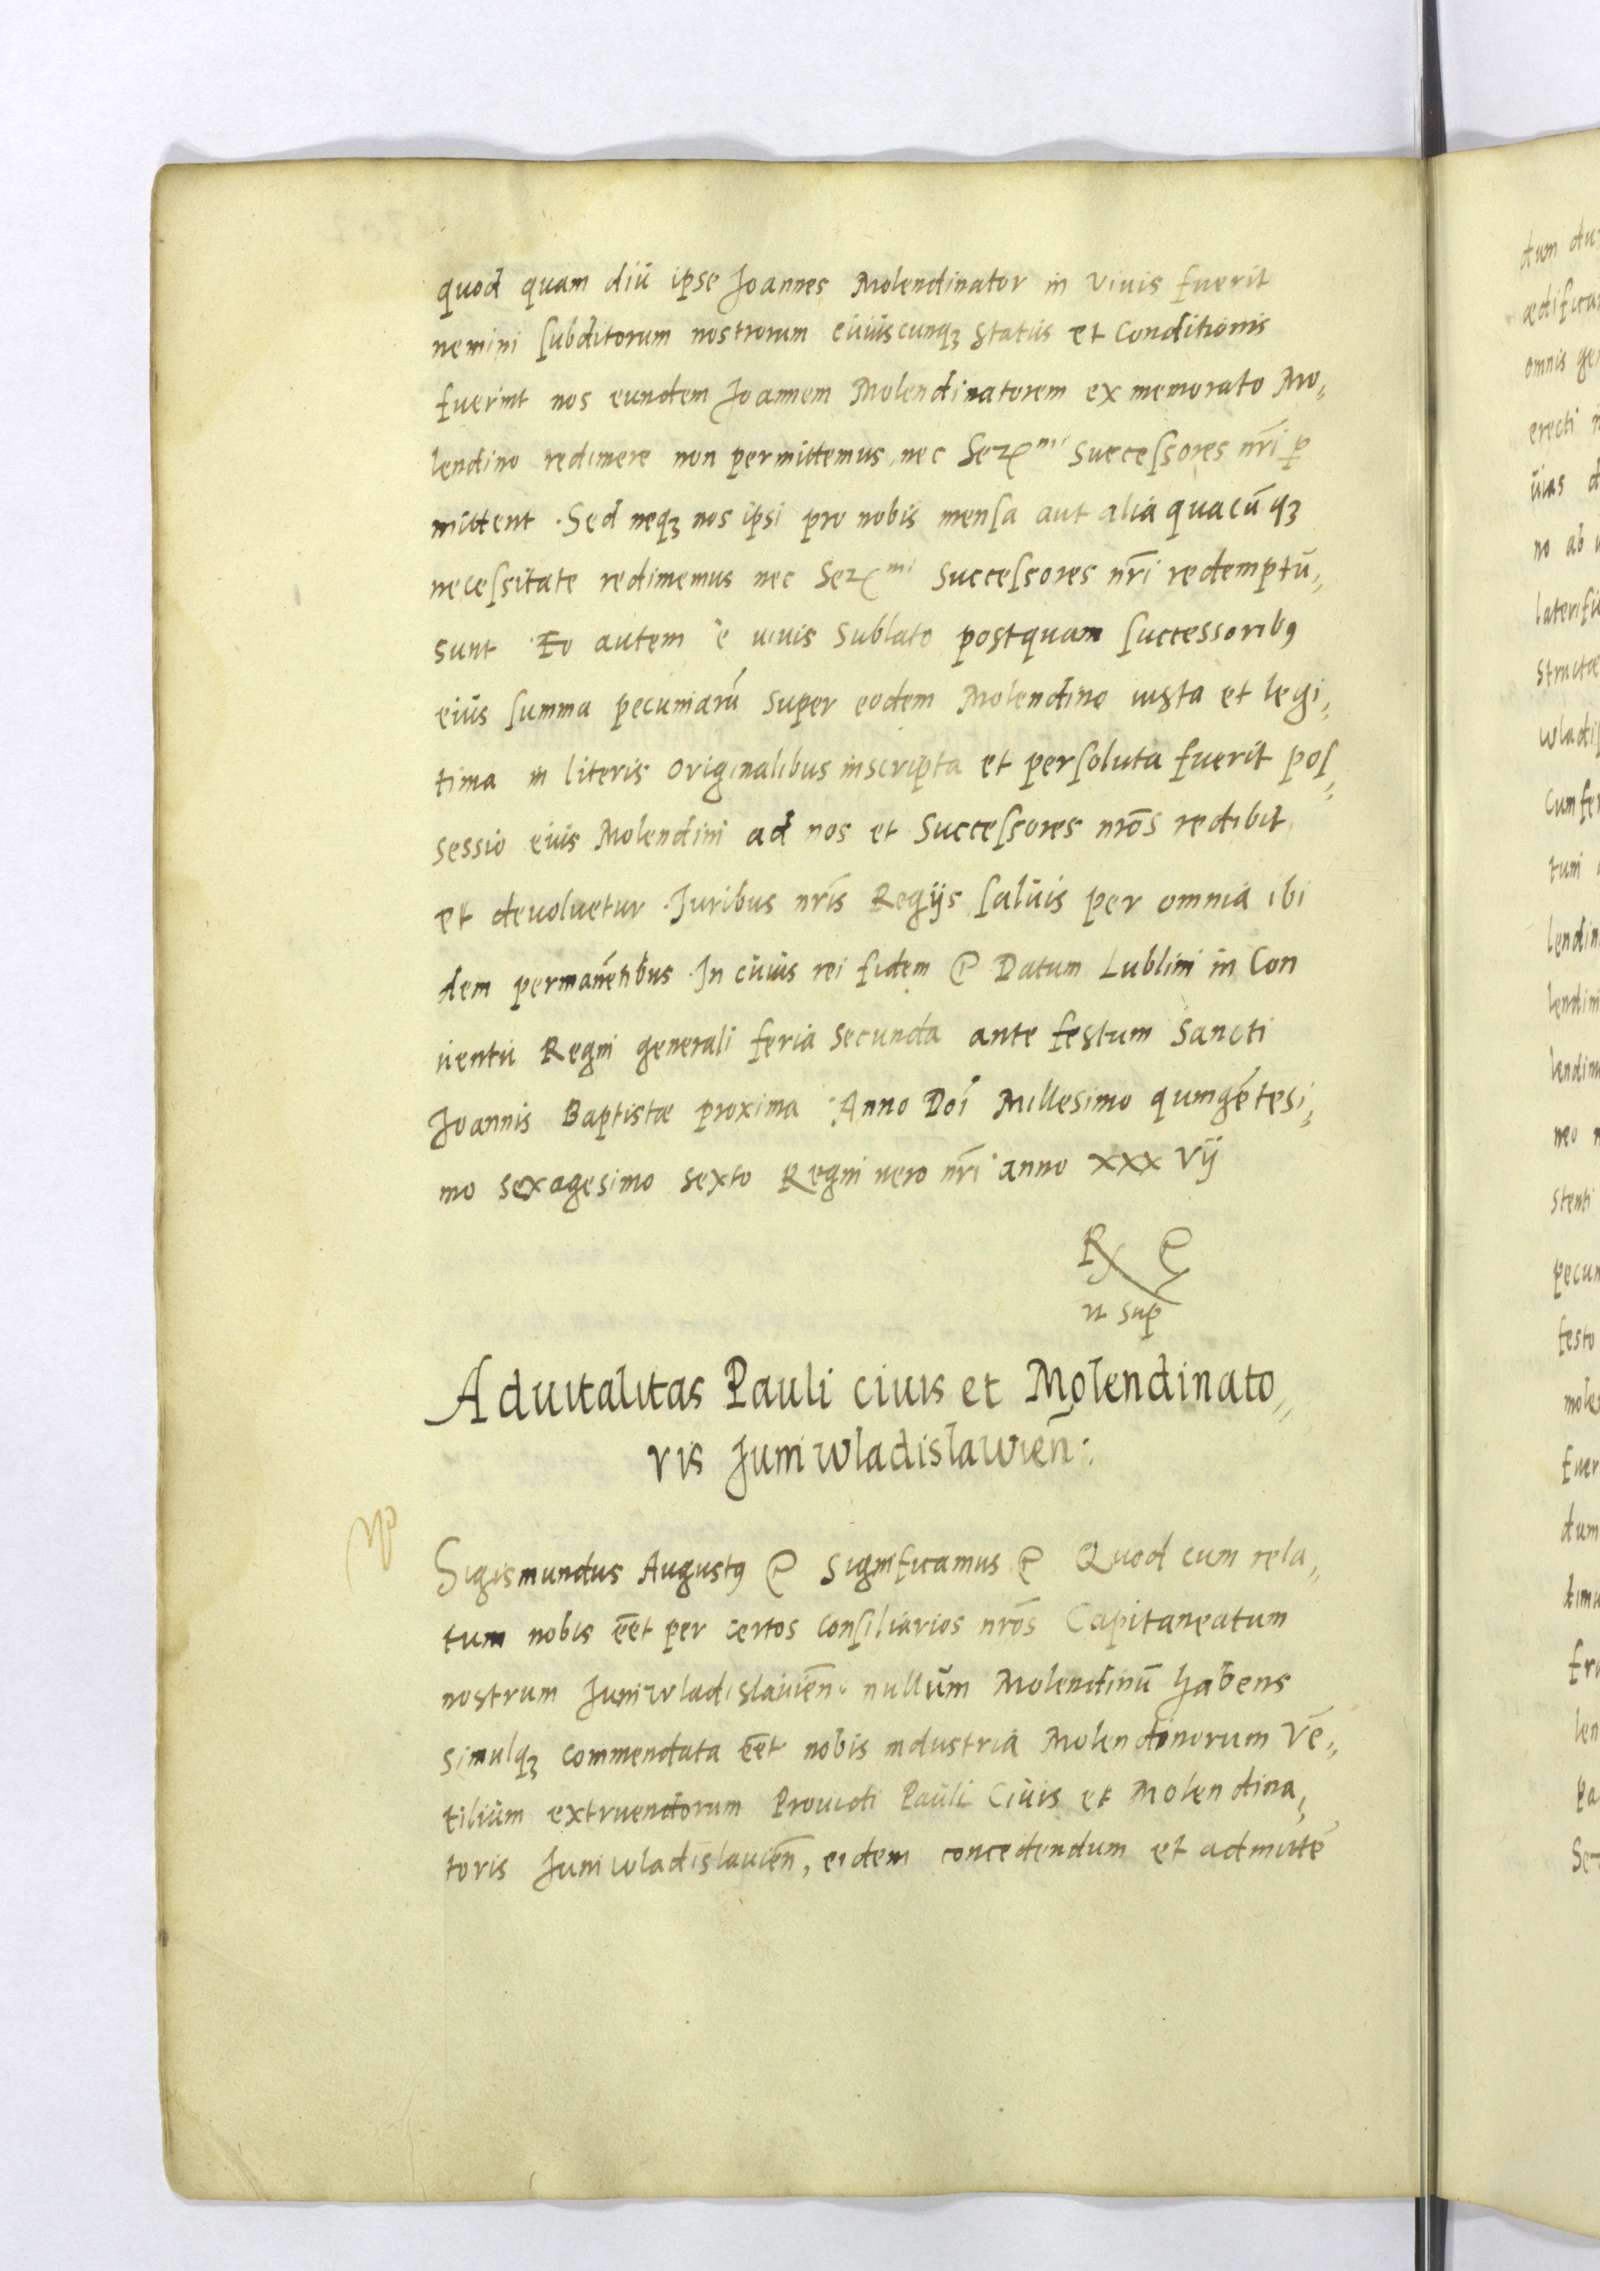 quod quam diu ipse Joannes Molendinator in viuis fuerit
nemini subditorum nostrorum cuiuscunqз status et Conditionis
fuerint nos eundem Joannem Molendinatorem ex memorato Mo„
lendino redimere non permittemus, nec Ser͞ᵐⁱ Successores nr̄i p̱
mittent . Sed neqз nos ipsi pro nobis mensa aut alia quacūqз
necessitate redimemus nec Ser͞ᵐⁱ Successores nr̄i redemptu„
sunt Eo autem è viuis sublato postquam successoribꝰ
eius summa pecuniarū super eodem Molendino iusta et legi„
tima in literis Originalibus inscripta et persoluta fuerit pos„
sessio eius Molendini ad nos et Successores nr̄os redibit
et deuoluetur . Juribus nr̄is Regijs saluis per omnia ibi
dem permanētibus . In cuius rei fidem Datum Lublini in Con
uentu Regni generali feria Secunda ante festum Sancti
Joannis Baptistæ proxima . Anno Doī Millesimo quingētesi„
mo sexagesimo sexto Regni uero nr̄i anno XXXVij
ut sup
Aduitalitas Pauli ciuis et Molendinato„
ris Juniwladislawieñ:
Sigismundus Augustꝰ Significamus Quod cum rela„
tum nobis eēt per certos consiliarios nr̄os Capitaneatum
nostrum Juniwladislauień. nullum Molendinū habens
simulqз commendata eēt nobis industria Molendinorum Vē„
tilium extruendorum Prouidi Pauli Ciuis et Molendina„
toris Juniwladislauień, eidem concedendum et admittē